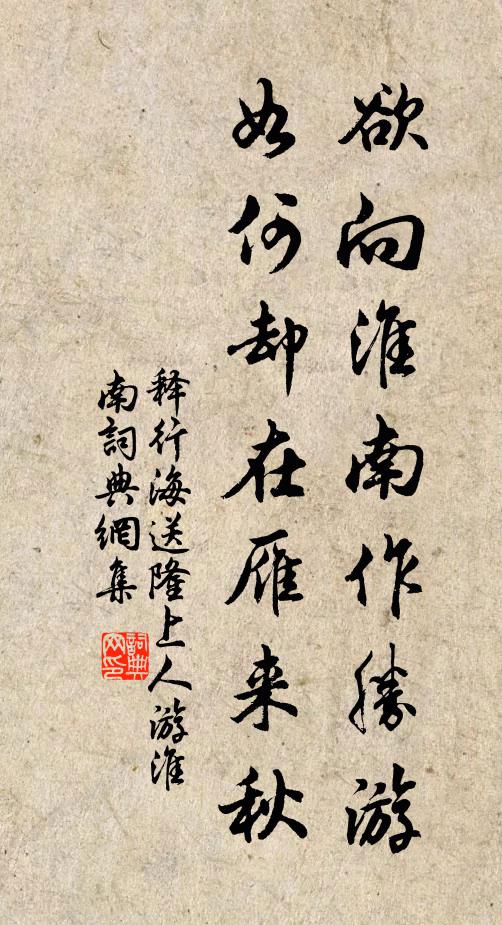 欲向淮南作勝游
如何却在雁来秋
释行海送隆上人游淮
南詞典網集
詞典
网印